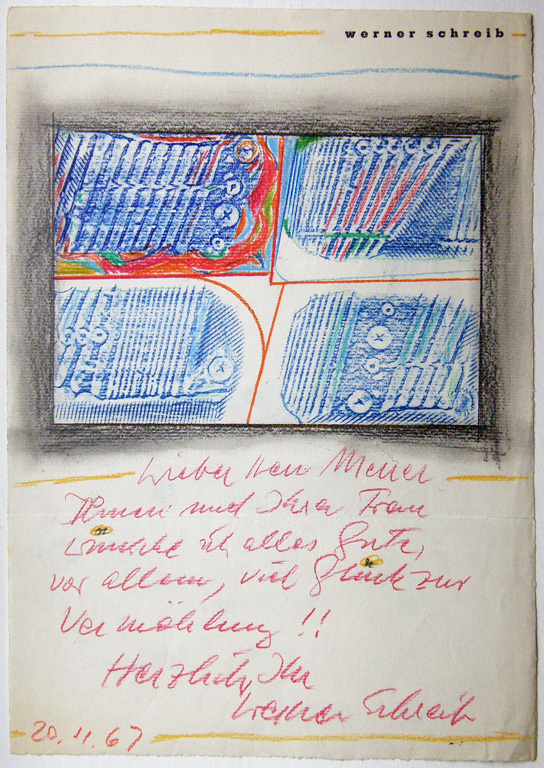 werner schreib
Lieber Herr Mener
Ihnen und Ihrer Frau
wünsche ich alles Gute,
vor allem, viel Glück zur
Vermählung!!
Herzlich, Ihr
Werner Schreib
20.11.67